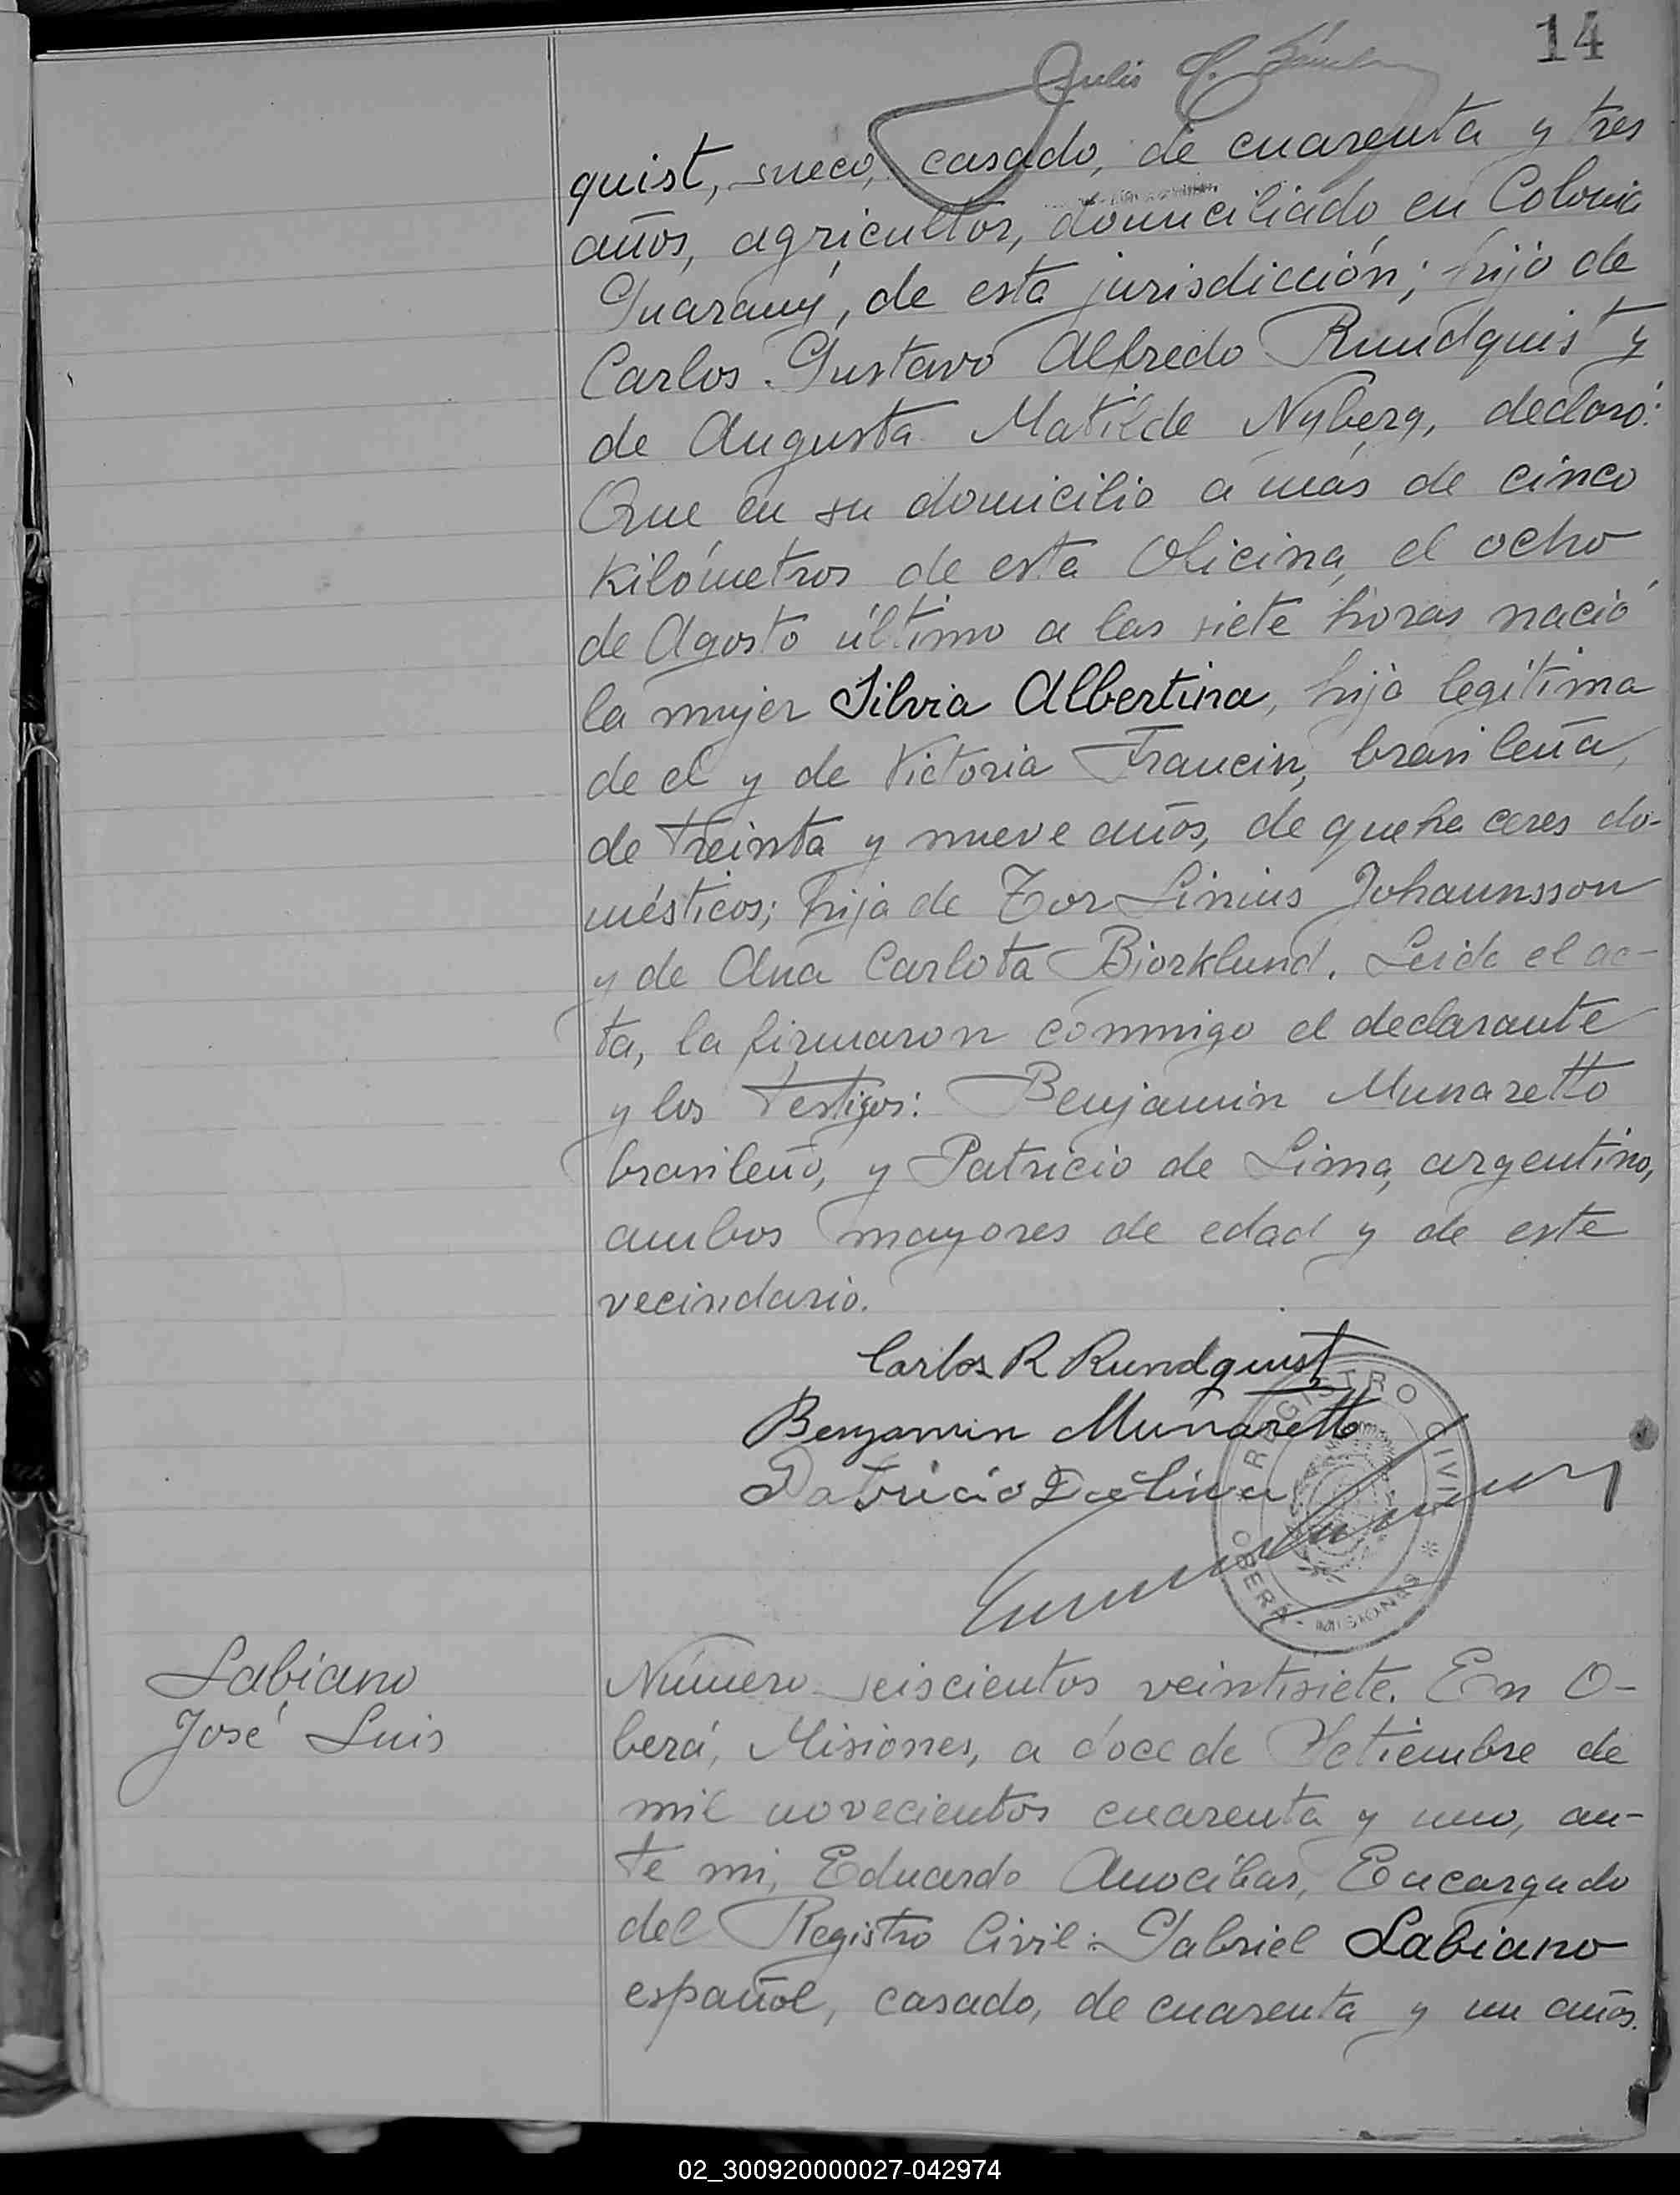 14
quist, sueco, casado, de cuarenta y tres
años, agricultor, domiciliado en Colonia
Guaraný, de esta jurisdicción; hijo de
Carlos Gustavo Alfredo Rundquist y
de Augusta Matilde Nyberg, declaró:
Que en su domicilio a más de cinco
kilómetros de esta Oficina, el ocho
de Agosto último a las siete horas nació
la mujer Silvia Albertina, hija legítima
de el y de Victoria Francin, brasileña,
de treinta y nueve años, de quehaceres do-
mésticos; hija de Tor Linius Johannsson
y de Ana Carlota Bjorklund. Leida el ac-
ta, la firmaron conmigo el declarante
y los testigos: Benjamin Munaretto
brasileño, y Patricio de Lima, argentino,
ambos mayores de edad y de este
vecindario.
Carlos R Rundquist
Benjamin Munaretto
Patricio De Lima
REGISTRO CIVIL
OBERA - MISIONES
Labiano
José Luis
Número seiscientos veintisiete. En O-
berá, Misiones, a doce de Setiembre de
mil novecientos cuarenta y uno, an-
te mi, Eduardo Anocibar, Encargado
del Registro Civil: Gabriel Labiano
español, casado, de cuarenta y un años.
02_300920000027-042974